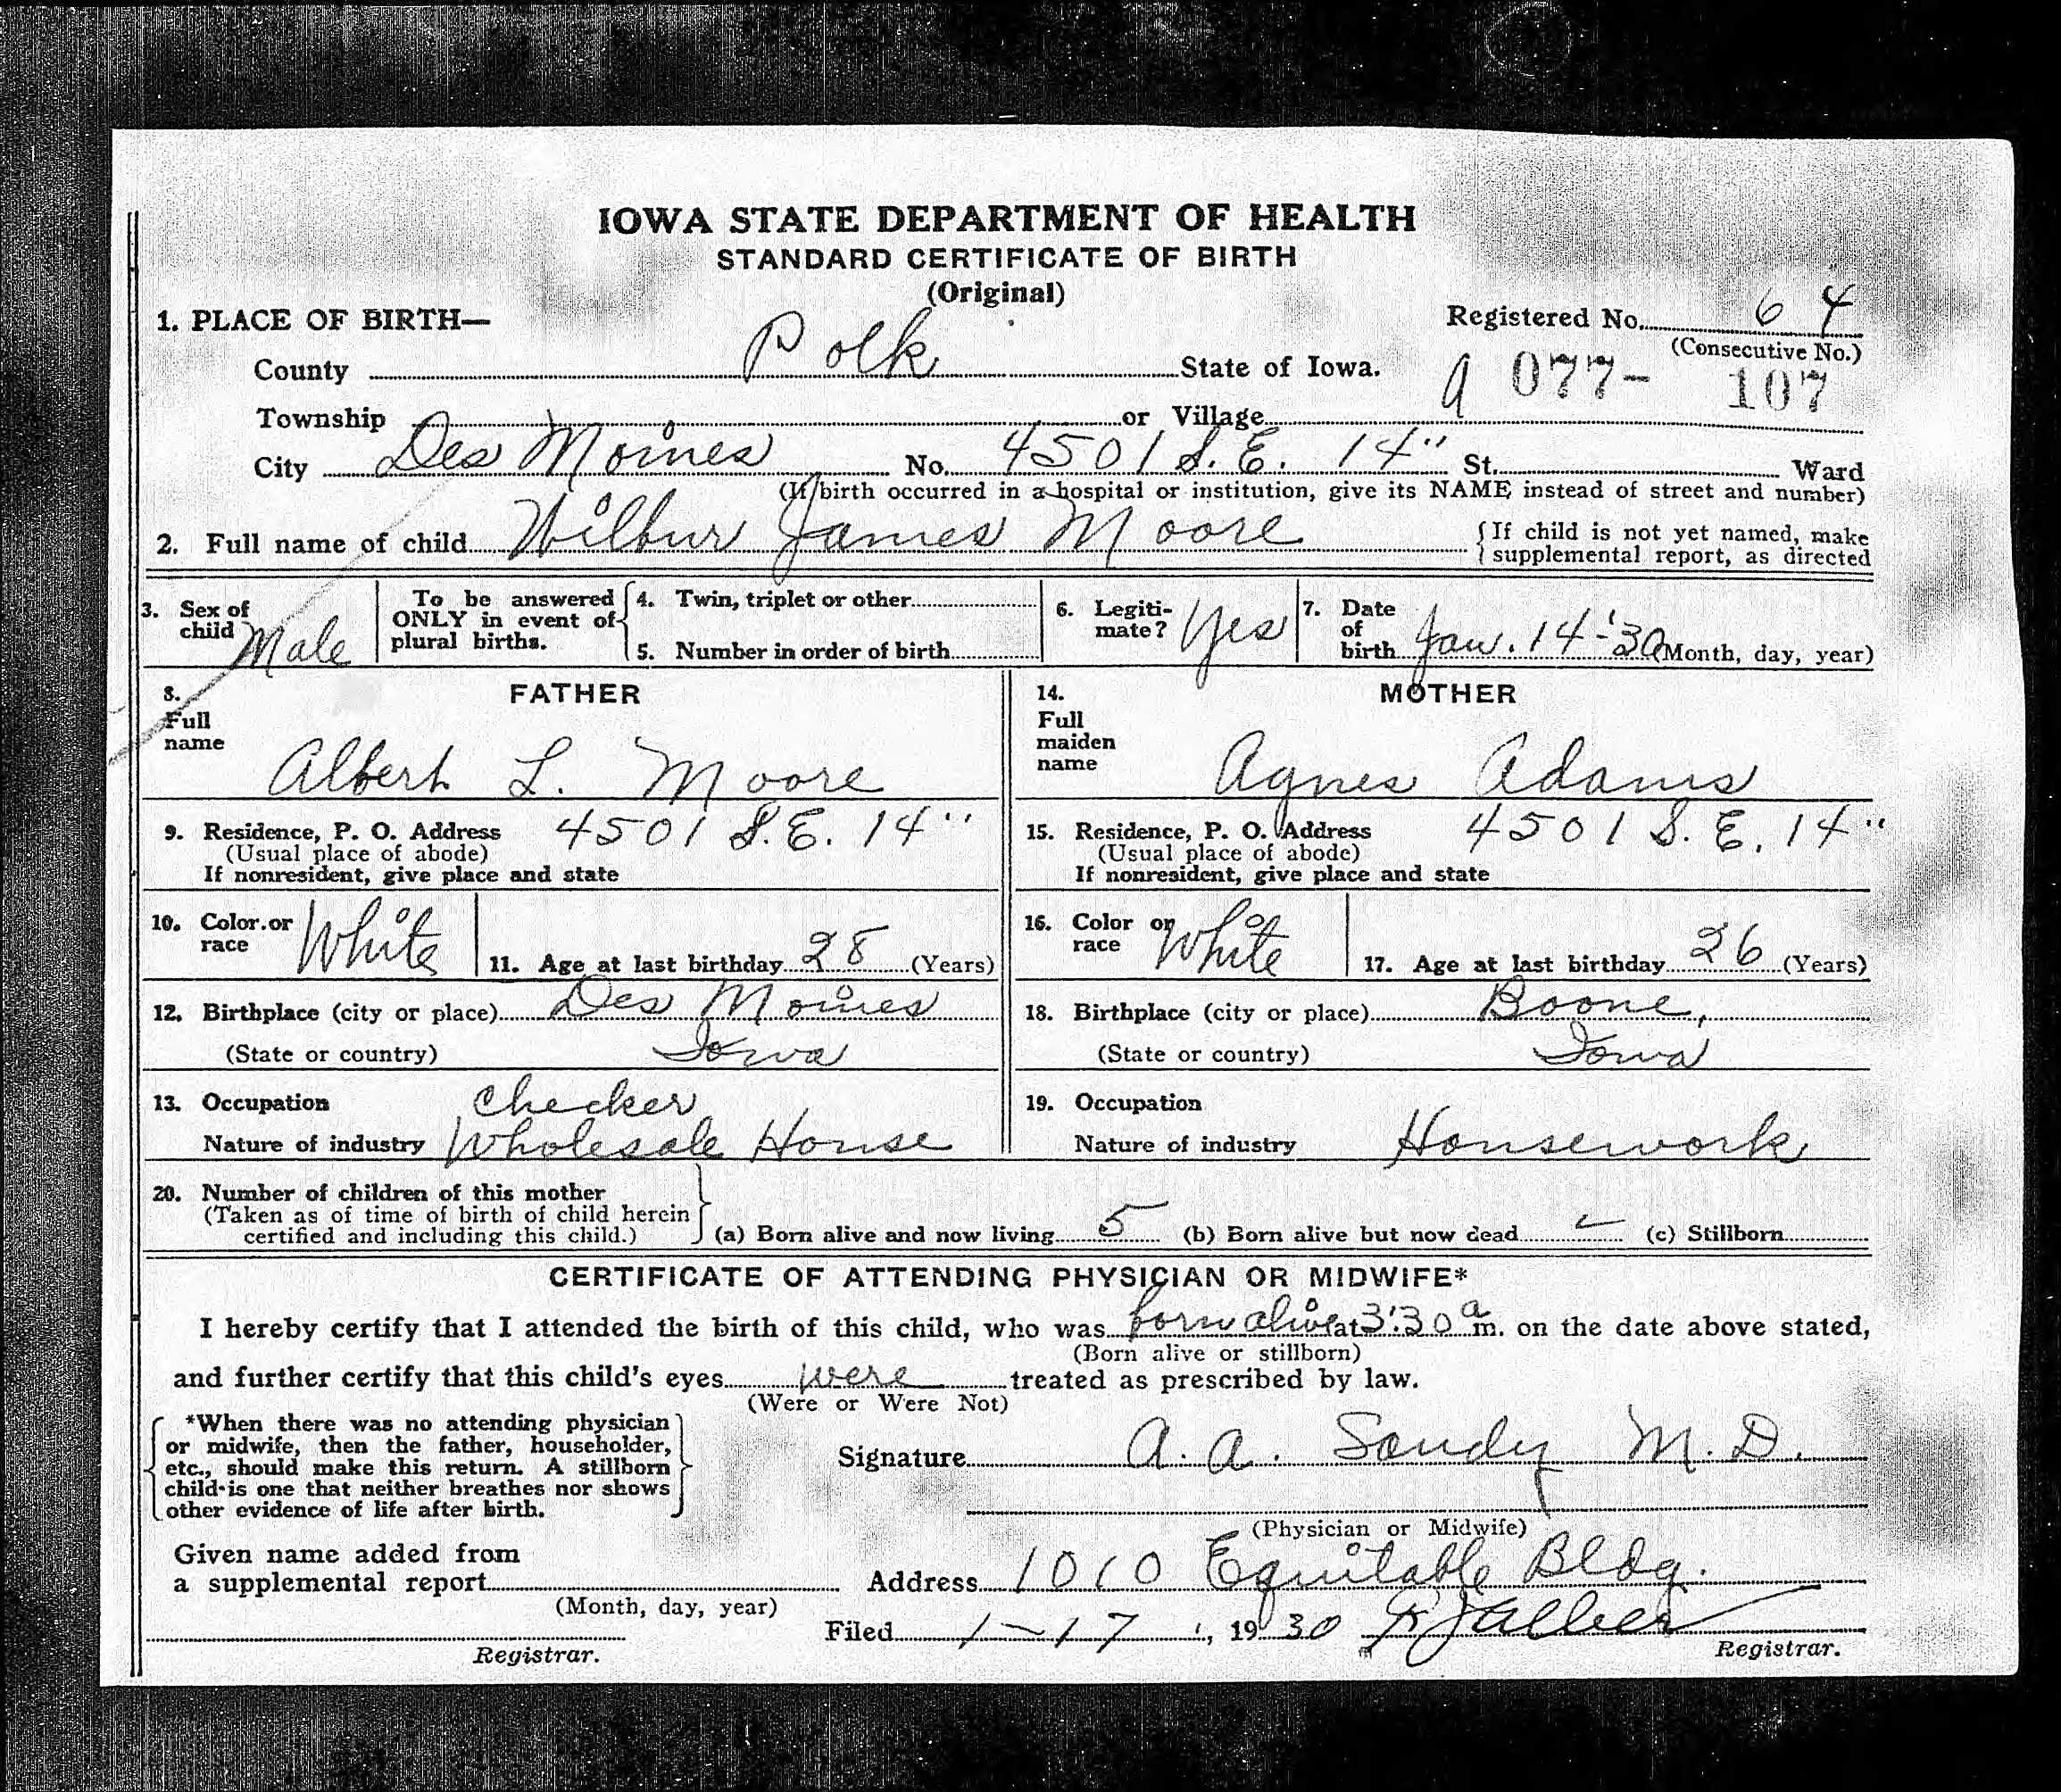 IOWA STATE DEPARTMENT OF HEALTH
STANDARD CERTIFICATE OF BIRTH
(Original)
1. PLACE OF BIRTH—
Registered No. 64
(Consecutive No.)
County Polk State of Iowa. a 077- 107
Township or Village
City Des Moines No. 4501 S. E. 14" St. Ward
(If birth occurred in a hospital or institution, give its NAME instead of street and number)
2. Full name of child Wilbur James Moore {If child is not yet named, make supplemental report, as directed
3. Sex of child Male
To be answered ONLY in event of plural births.
4. Twin, triplet or other
5. Number in order of birth
6. Legitimate? Yes
7. Date of birth Jan. 14-'30 (Month, day, year)
8. FATHER
Full name
Albert L. Moore
14. MOTHER
Full maiden name
Agnes Adams
9. Residence, P. O. Address 4501 S. E. 14"
(Usual place of abode)
If nonresident, give place and state
15. Residence, P. O. Address 4501 S. E. 14"
(Usual place of abode)
If nonresident, give place and state
10. Color or race White
11. Age at last birthday 28 (Years)
16. Color or race White
17. Age at last birthday 26 (Years)
12. Birthplace (city or place) Des Moines
(State or country) Iowa
18. Birthplace (city or place) Boone,
(State or country) Iowa
13. Occupation Checker
Nature of industry Wholesale House
19. Occupation
Nature of industry Housework
20. Number of children of this mother
(Taken as of time of birth of child herein
certified and including this child.)
(a) Born alive and now living 5 (b) Born alive but now dead – (c) Stillborn
CERTIFICATE OF ATTENDING PHYSICIAN OR MIDWIFE*
I hereby certify that I attended the birth of this child, who was born alive at 3:30 a m. on the date above stated,
(Born alive or stillborn)
and further certify that this child's eyes were treated as prescribed by law.
(Were or Were Not)
*When there was no attending physician
or midwife, then the father, householder,
etc., should make this return. A stillborn
child is one that neither breathes nor shows
other evidence of life after birth.
Signature A. A. M. D.
(Physician or Midwife)
Given name added from
a supplemental report
(Month, day, year)
Registrar.
Address 1010 Equitable Bldg.
Filed 1-17, 1930
Registrar.